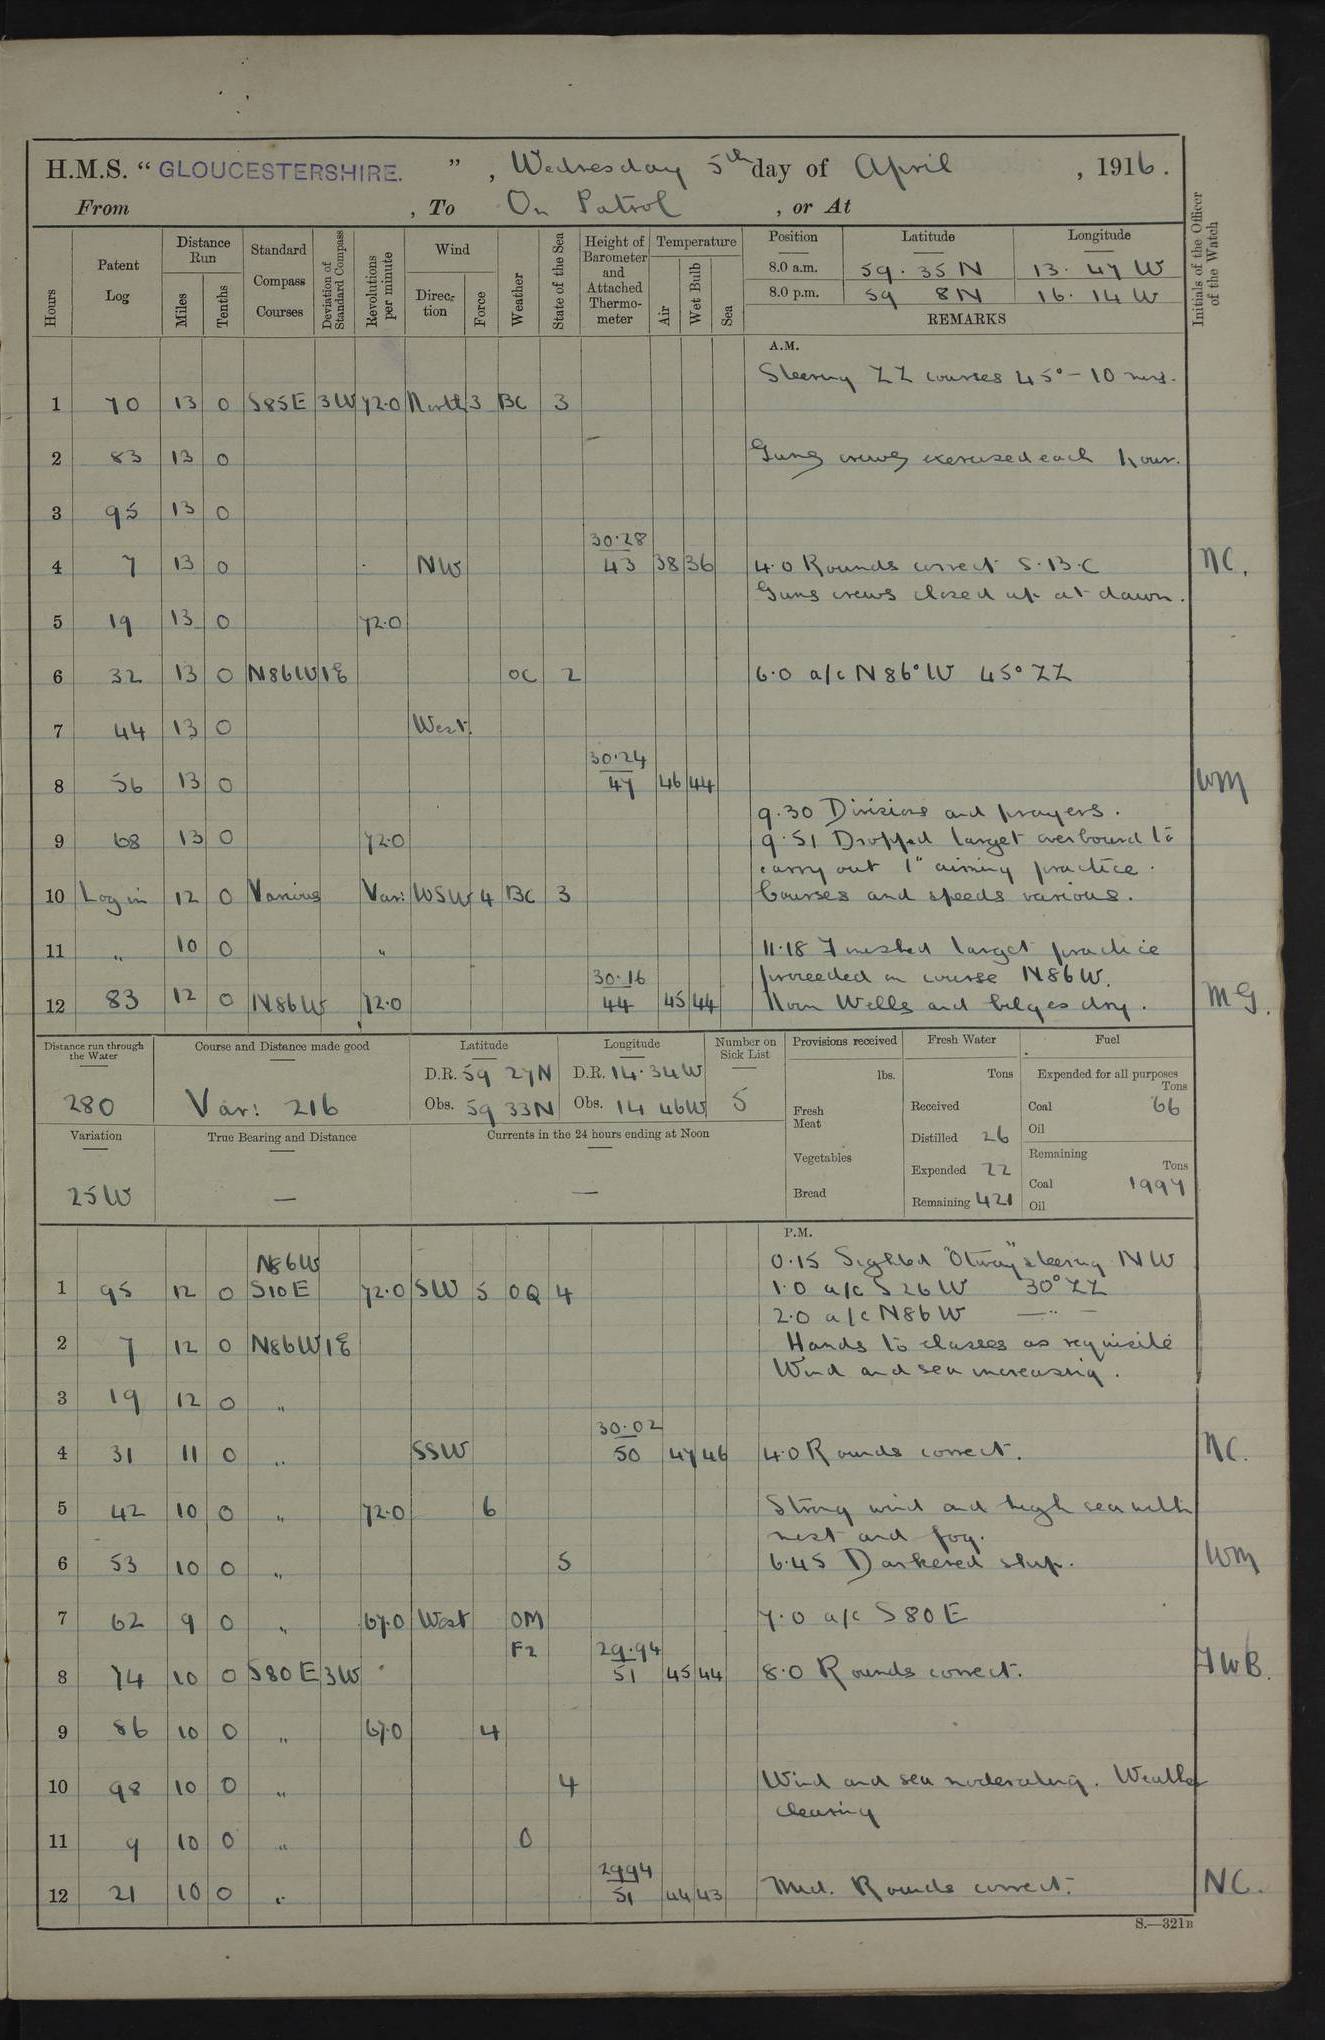 H.M.S. " GLOUCESTERSHIRE. " , Wednesday 5th day of April , 1916.
From , To On Patrol , or At
Hours
Patent Log
Distance Run
Miles
Tenths
Standard Compass Courses
Deviation of Standard Compass
Revolutions per minute
Wind
Direction
Force
Weather
State of the Sea
Height of Barometer and Attached Thermometer
Temperature
Air
Wet Bulb
Sea
Position Latitude Longitude
8.0 a.m. 59. 35 N 13. 47 W
8.0 p.m. 59 8 N 16. 14 W
REMARKS
Initials of the Officer of the Watch
A.M.
Steering ZZ courses 45° - 10 mns.
1 70 13 0 S85E 3W 72.0 North 3 BC 3
2 83 13 0 Guns crews exercised each hour.
3 95 13 0
30.28
4 7 13 0 NW 43 38 36 4.0 Rounds correct S.B.C NC.
Guns crews closed up at dawn.
5 19 13 0 72.0
6 32 13 0 N86W 1E OC 2 6.0 a/c N86°W 45° ZZ
7 44 13 0 West.
30.24
8 56 13 0 47 46 44 WM
9.30 Divisions and prayers.
9 68 13 0 72.0 9.51 Dropped target overboard to
carry out 1" aiming practice.
10 Log in 12 0 Various Var: WSW 4 BC 3 Courses and speeds various.
11 " 10 0 " 11.18 Finished target practice
30.16 proceeded on course N86W.
12 83 12 0 N86W 72.0 44 45 44 Noon Wells and bilges dry. MG.
Distance run through the Water
280
Course and Distance made good
Var: 216
Latitude
D.R. 59 27N
Obs. 59 33N
Longitude
D.R. 14.34W
Obs. 14 46W
Number on Sick List
5
Provisions received
lbs.
Fresh Meat
Vegetables
Bread
Fresh Water
Tons
Received
Distilled 26
Expended 22
Remaining 421
Fuel
Expended for all purposes
Tons
Coal 66
Oil
Remaining
Tons
Coal 1997
Oil
Variation
25W
True Bearing and Distance
—
Currents in the 24 hours ending at Noon
—
P.M.
N86W 0.15 Sighted "Otway" steering NW
1 95 12 0 S10E 72.0 SW 5 OQ 4 1.0 a/c S26W 30° ZZ
2.0 a/c N86W —"—
2 7 12 0 N86W 1E Hands to classes as requisite
Wind and sea increasing.
3 19 12 0 "
30.02
4 31 11 0 " SSW 50 47 46 4.0 Rounds correct. NC.
5 42 10 0 " 72.0 6 Strong wind and high sea with
mist and fog.
6 53 10 0 " 5 6.45 Darkened ship. WM
7 62 9 0 " 67.0 West OM 7.0 a/c S80E
F2 29.94
8 74 10 0 S80E 3W 51 45 44 8.0 Rounds correct. FWB.
9 86 10 0 " 67.0 4
10 98 10 0 " 4 Wind and sea moderating. Weather
clearing
11 9 10 0 " O
2994
12 21 10 0 " 51 44 43 Mid. Rounds correct. NC.
S.—321B